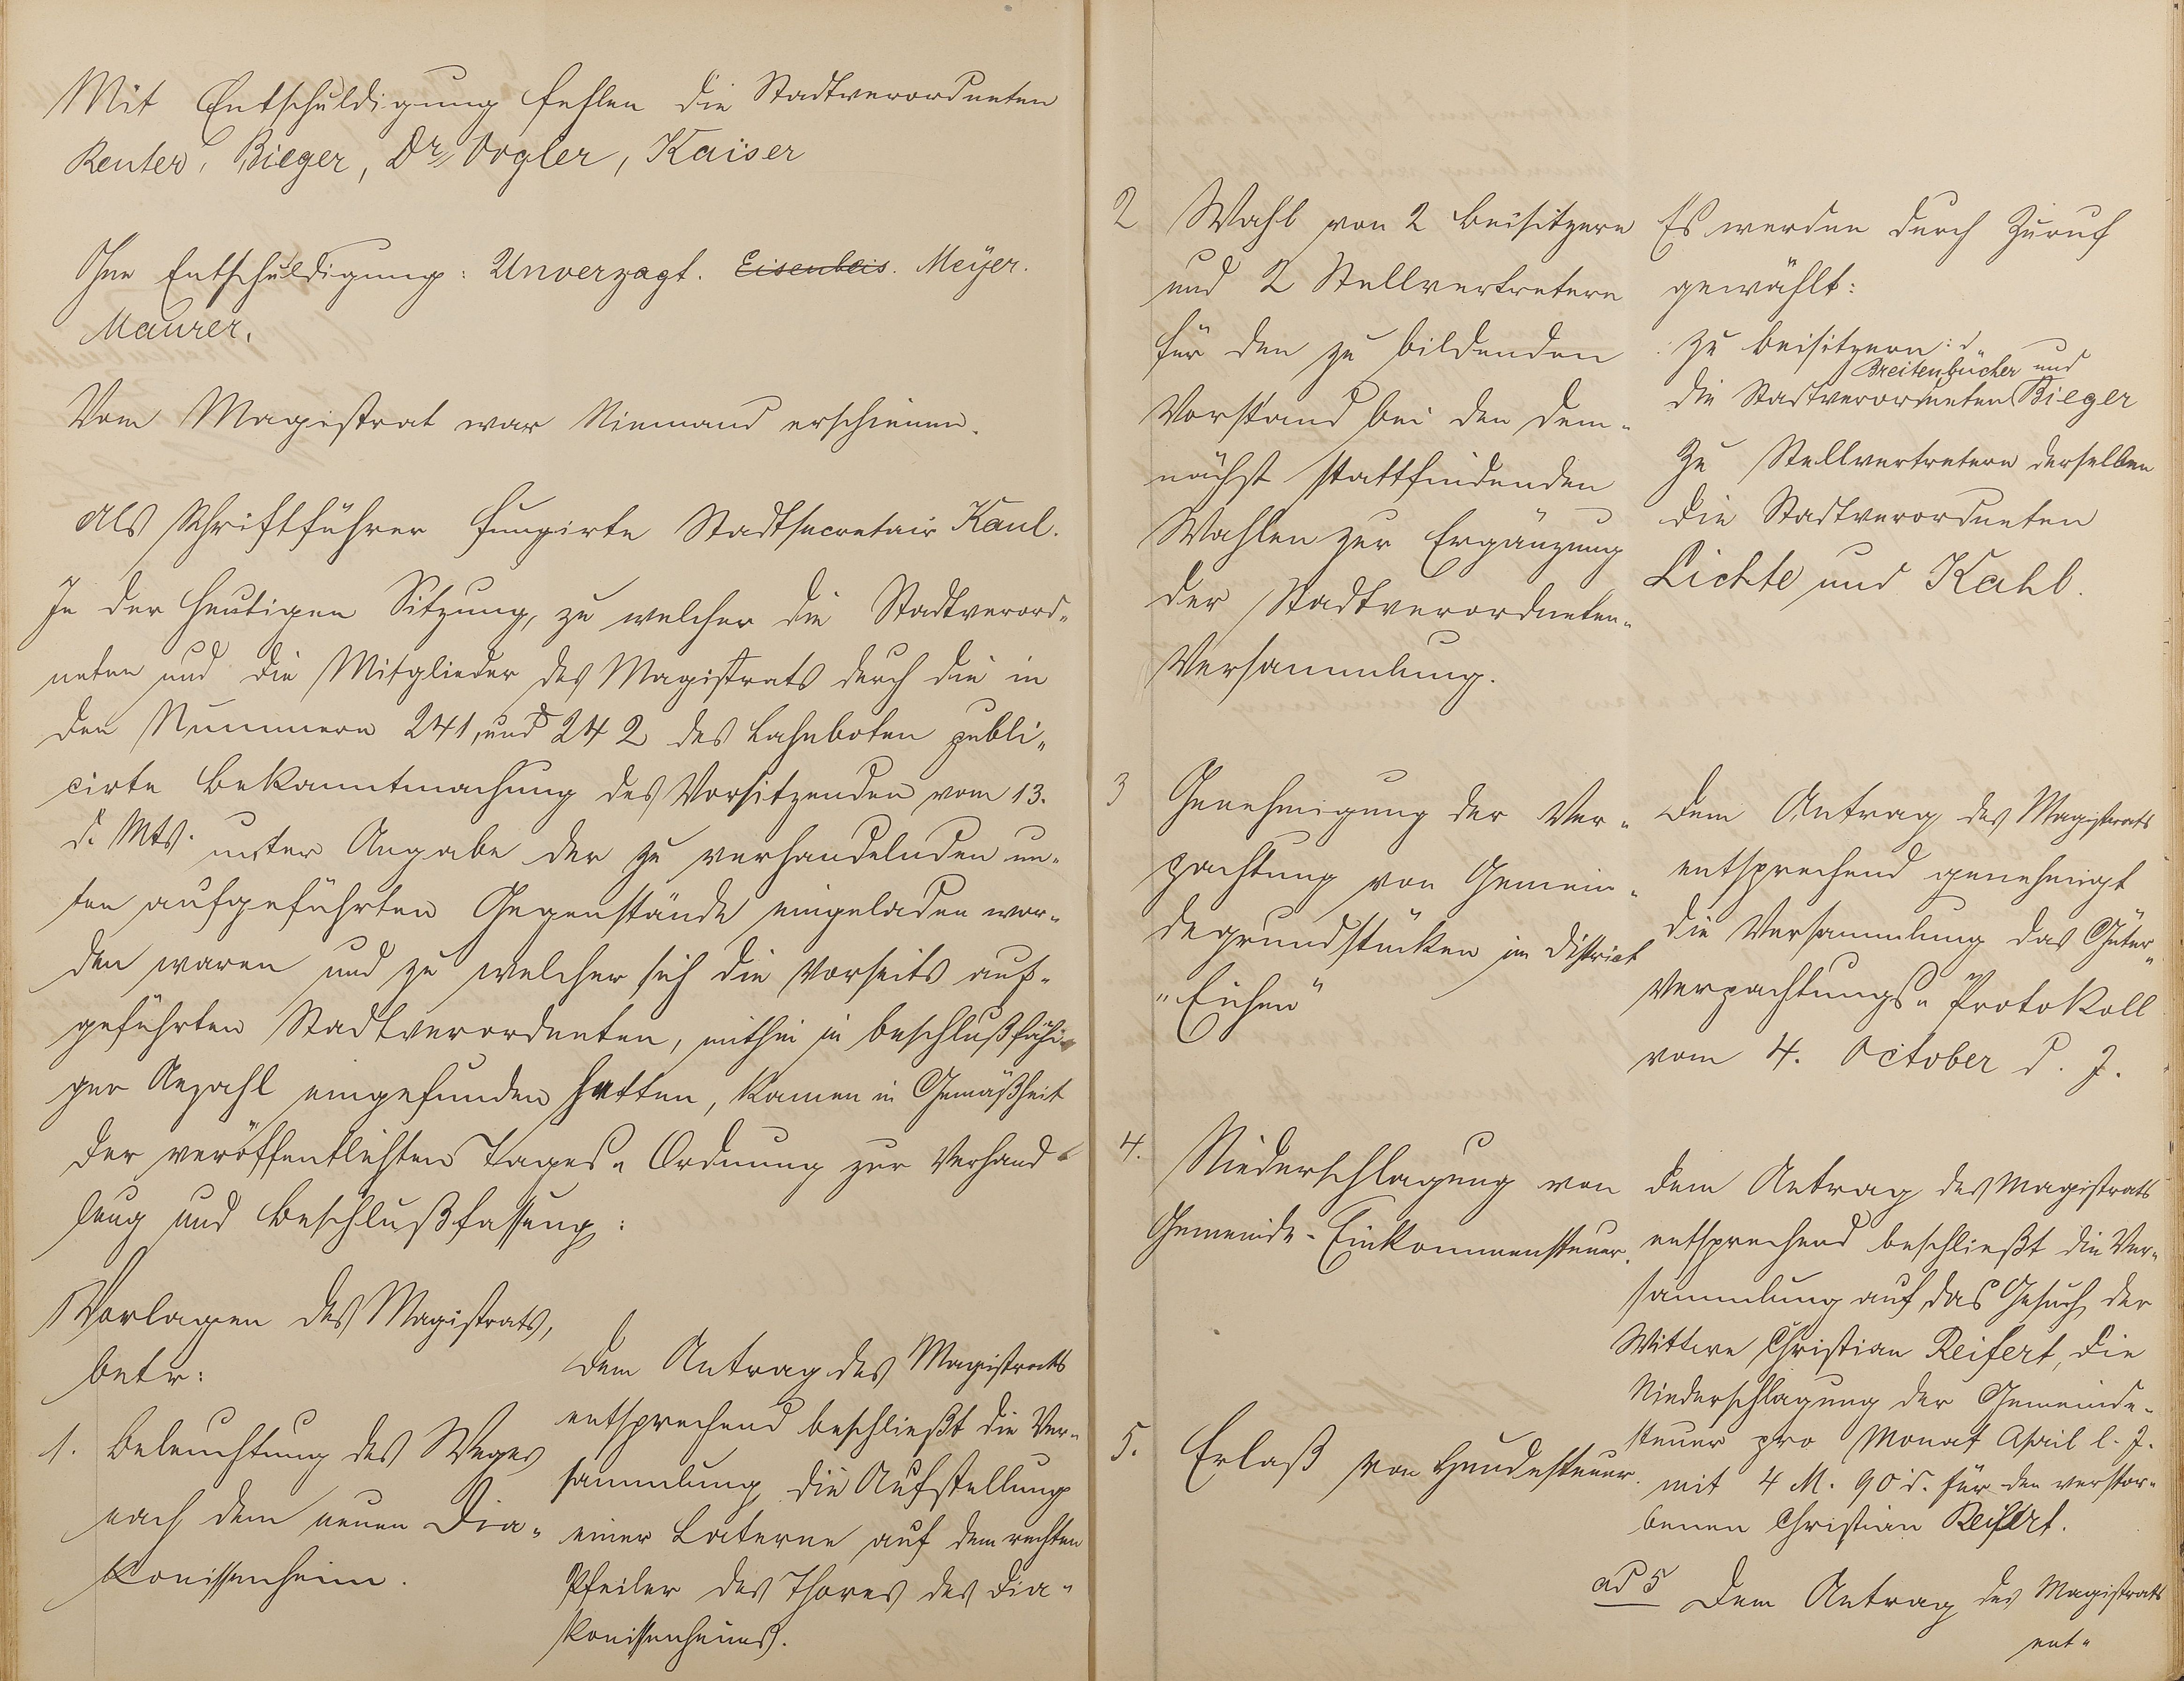 Mit Entschuldigung fehlen die Stadtverordneten
Renter, Bieger, Dr. Vogler, Kaiser
Ohne Entschuldigung: Unverzagt. Eisenbeis. Meÿer.
Maurer.
Vom Magistrat war Niemand erschienen.
Als Schriftführer fungirte Stadtsecretair Kaul.
In der heutigen Sitzung, zu welcher die Stadtverord-
neten und die Mitglieder des Magistrats durch die in
den Nummern 241, und 242 des Lahnboten publi-
cirte Bekanntmachung des Vorsitzenden vom 13.
d. Mts. unter Angabe der zu verhandelnden un-
ten aufgeführten Gegenstände eingeladen wor-
den waren und zu welcher sich die Vorseits auf-
geführten Stadtverordneten, mithin in beschlußfähi-
ger Anzahl eingefunden hatten, kamen in Gemäßheit
der veröffentlichten Tages-Ordnung zur Verhand-
lung und Beschlußfassung:
Vorlagen des Magistrats,
betr:
1. Beleuchtung des Weges
nach dem neuen Dia-
konissenheim.
Dem Antrag des Magistrats
entsprechend beschließt die Ver-
sammlung die Aufstellung
einer Laterne auf dem rechten
Pfeiler des Thores des Dia-
konissenheims.
2 Wahl von 2 Beisitzern
und 2 Stellvertretern
für den zu bildenden
Vorstand bei den dem-
nächst stattfindenden
Wahlen zur Ergänzung
der Stadtverordneten-
Versammlung.
Es werden durch Zuruf
gewählt:
zu Beisitzern:
Breitenbücher und
die Stadtverordneten Bieger
Zu Stellvertretern derselben
die Stadtverordneten
Lichte und Kahl.
3 Genehmigung der Ver-
pachtung von Gemein-
degrundstücken im District
"Eichen"
Dem Antrag des Magistrats
entsprechend genehmigt
die Versammlung das Güter-
Verpachtungs-Protokoll
vom 4. October d. J.
4. Niederschlagung von
Gemeinde-Einkommensteuer.
Dem Antrag des Magistrats
entsprechend beschließt die Ver-
sammlung auf das Gesuch der
Wittwe Christian Reifert, die
Niederschlagung der Gemeinde-
steuer pro Monat April l. J.
mit 4 M. 90 d. für den verstor-
benen Christian Reifert.
5. Erlaß von Hundesteuer.
ad 5 Dem Antrag des Magistrats
ent-